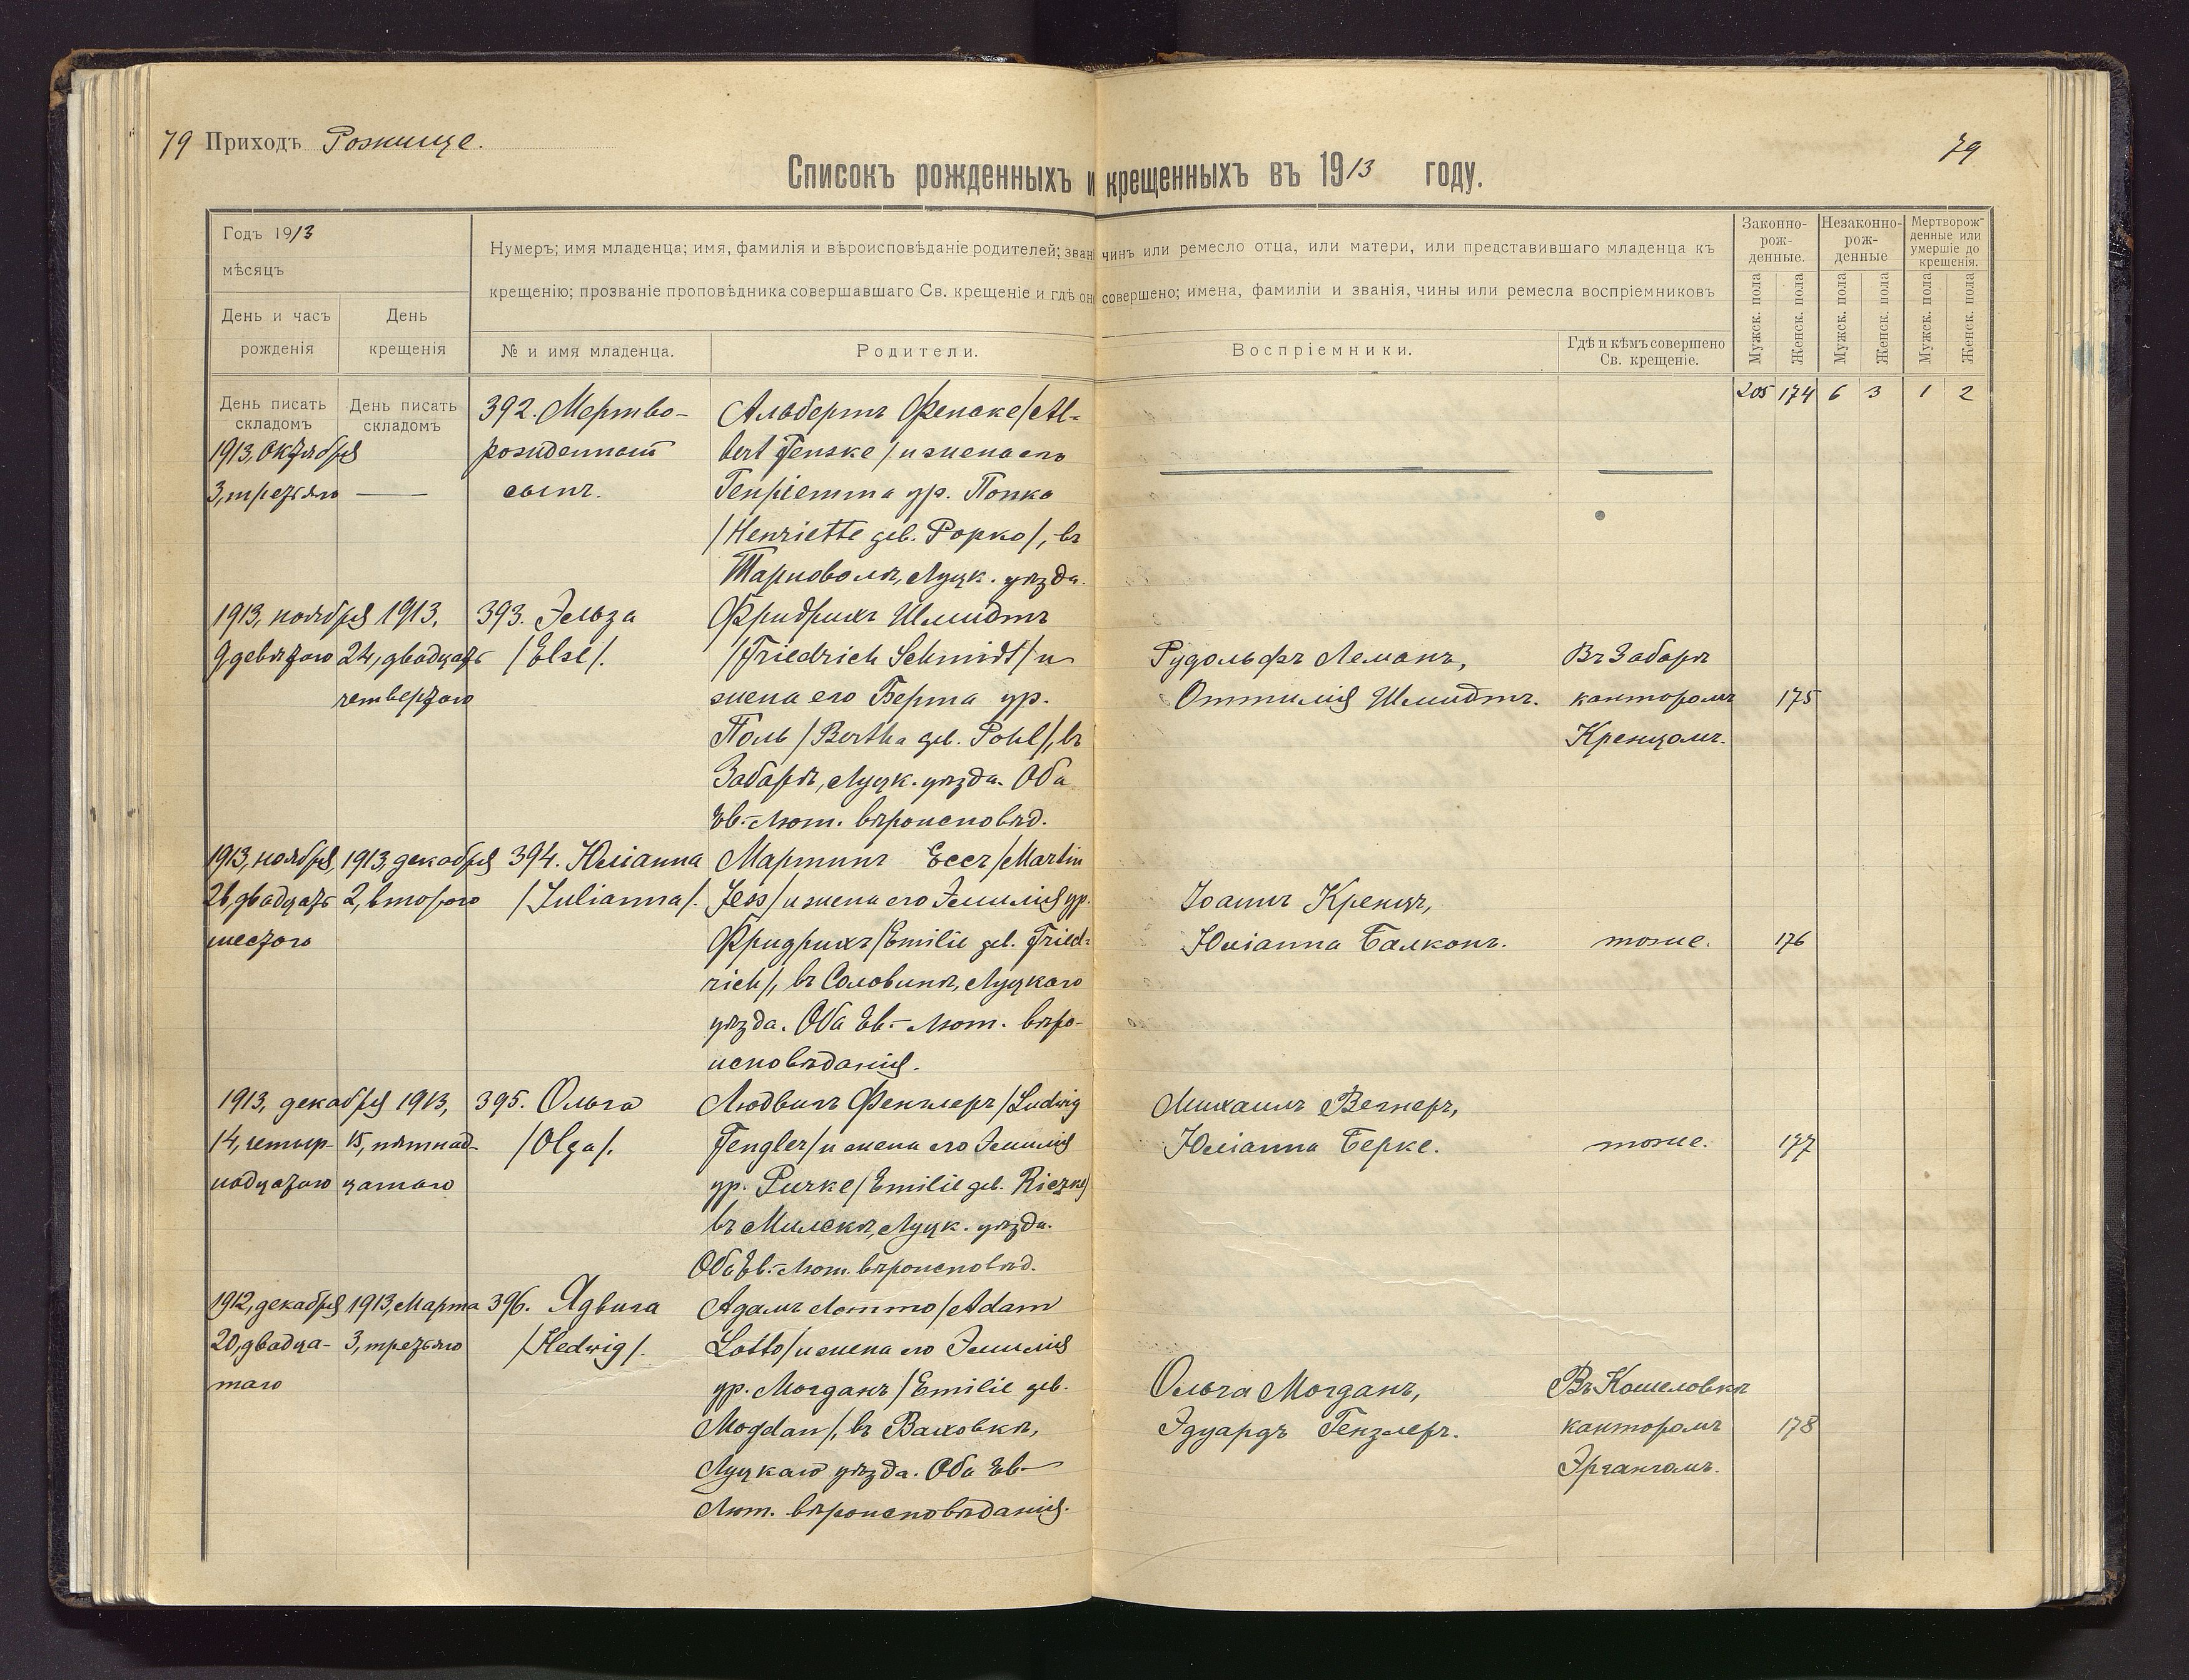 79 Приходъ Рожище.
79
Списокъ рожденныхъ и крещенныхъ въ 1913 году.
Годъ 1913
мѣсяцъ
День и часъ рожденія
День крещенія
Нумеръ; имя младенца; имя, фамилія и вѣроисповѣданіе родителей; зван чинъ или ремесло отца, или матери, или представившаго младенца къ
крещенію; прозваніе проповѣдника совершавшаго Св. крещеніе и гдѣ он совершено; имена, фамиліи и званія, чины или ремесла воспріемниковъ
№ и имя младенца.
Родители.
Воспріемники.
Гдѣ и кѣмъ совершено
Св. крещеніе.
Законно-
рож-
денные.
Незаконно-
рож-
денные
Мертворож-
денные или
умершіе до
крещенія.
Мужск. пола
Женск. пола
Мужск. пола
Женск. пола
Мужск. пола
Женск. пола
205 174 6 3 1 2
День писать
складомъ
День писать
складомъ
1913, октября
3, третьяго
392. Мертво-
рожденный
сынъ.
Альбертъ Фенске /Al-
bert Fenske/ и жена его
Генріетта ур. Попко
/Henriette geb. Popko/, въ
Тарноволѣ, Луцк. уѣзда.
1913, ноября
9, девятаго
1913,
24, двадцать
четвертаго
393. Эльза
/Else/.
Фридрихъ Шмидтъ
/Friedrich Schmidt/ и
жена его Берта ур.
Поль /Bertha geb. Pohl/, въ
Забарѣ, Луцк. уѣзда. Оба
Ев.-Лют. вѣроисповѣд.
Рудольфъ Леманъ,
Оттилія Шмидтъ.
Въ Забарѣ
канторомъ
Кренцомъ.
175
1913, ноября,
26, двадцать
шестого
1913, декабря
2, второго
394. Юліанна
/Julianna/.
Мартинъ Ессъ /Martin
Jess/ и жена его Эмилія ур.
Фридрихъ /Emilie geb. Fried-
rich/, въ Соловинѣ, Луцкаго
уѣзда. Оба Ев.-Лют. вѣро-
исповѣданія.
Іоаннъ Кренцъ,
Юліанна Балконъ.
тоже.
176
1913, декабря
14, четыр-
надцатаго
1913,
15, пятнад-
цатаго
395. Ольга
/Olga/.
Людвигъ Фенглеръ /Ludwig
Fengler/ и жена его Эмилія
ур. Ризке /Emilie geb. Riezke/
въ Милскѣ, Луцк. уѣзда.
Оба Ев.-Лют. вѣроисповѣд.
Михаилъ Вегнеръ,
Юліанна Берке.
тоже.
177
1912, декабря
20, двадца-
таго
1913, Марта
3, третьяго
396. Ядвига
/Hedwig/.
Адамъ Лотто /Adam
Lotto/ и жена его Эмилія
ур. Могданъ /Emilie geb.
Mogdan/, въ Ваховкѣ,
Луцкаго уѣзда. Оба Ев.-
Лют. вѣроисповѣданія.
Ольга Могданъ,
Эдуардъ Гензлеръ.
Въ Кошеловкѣ
канторомъ
Эргангомъ.
178